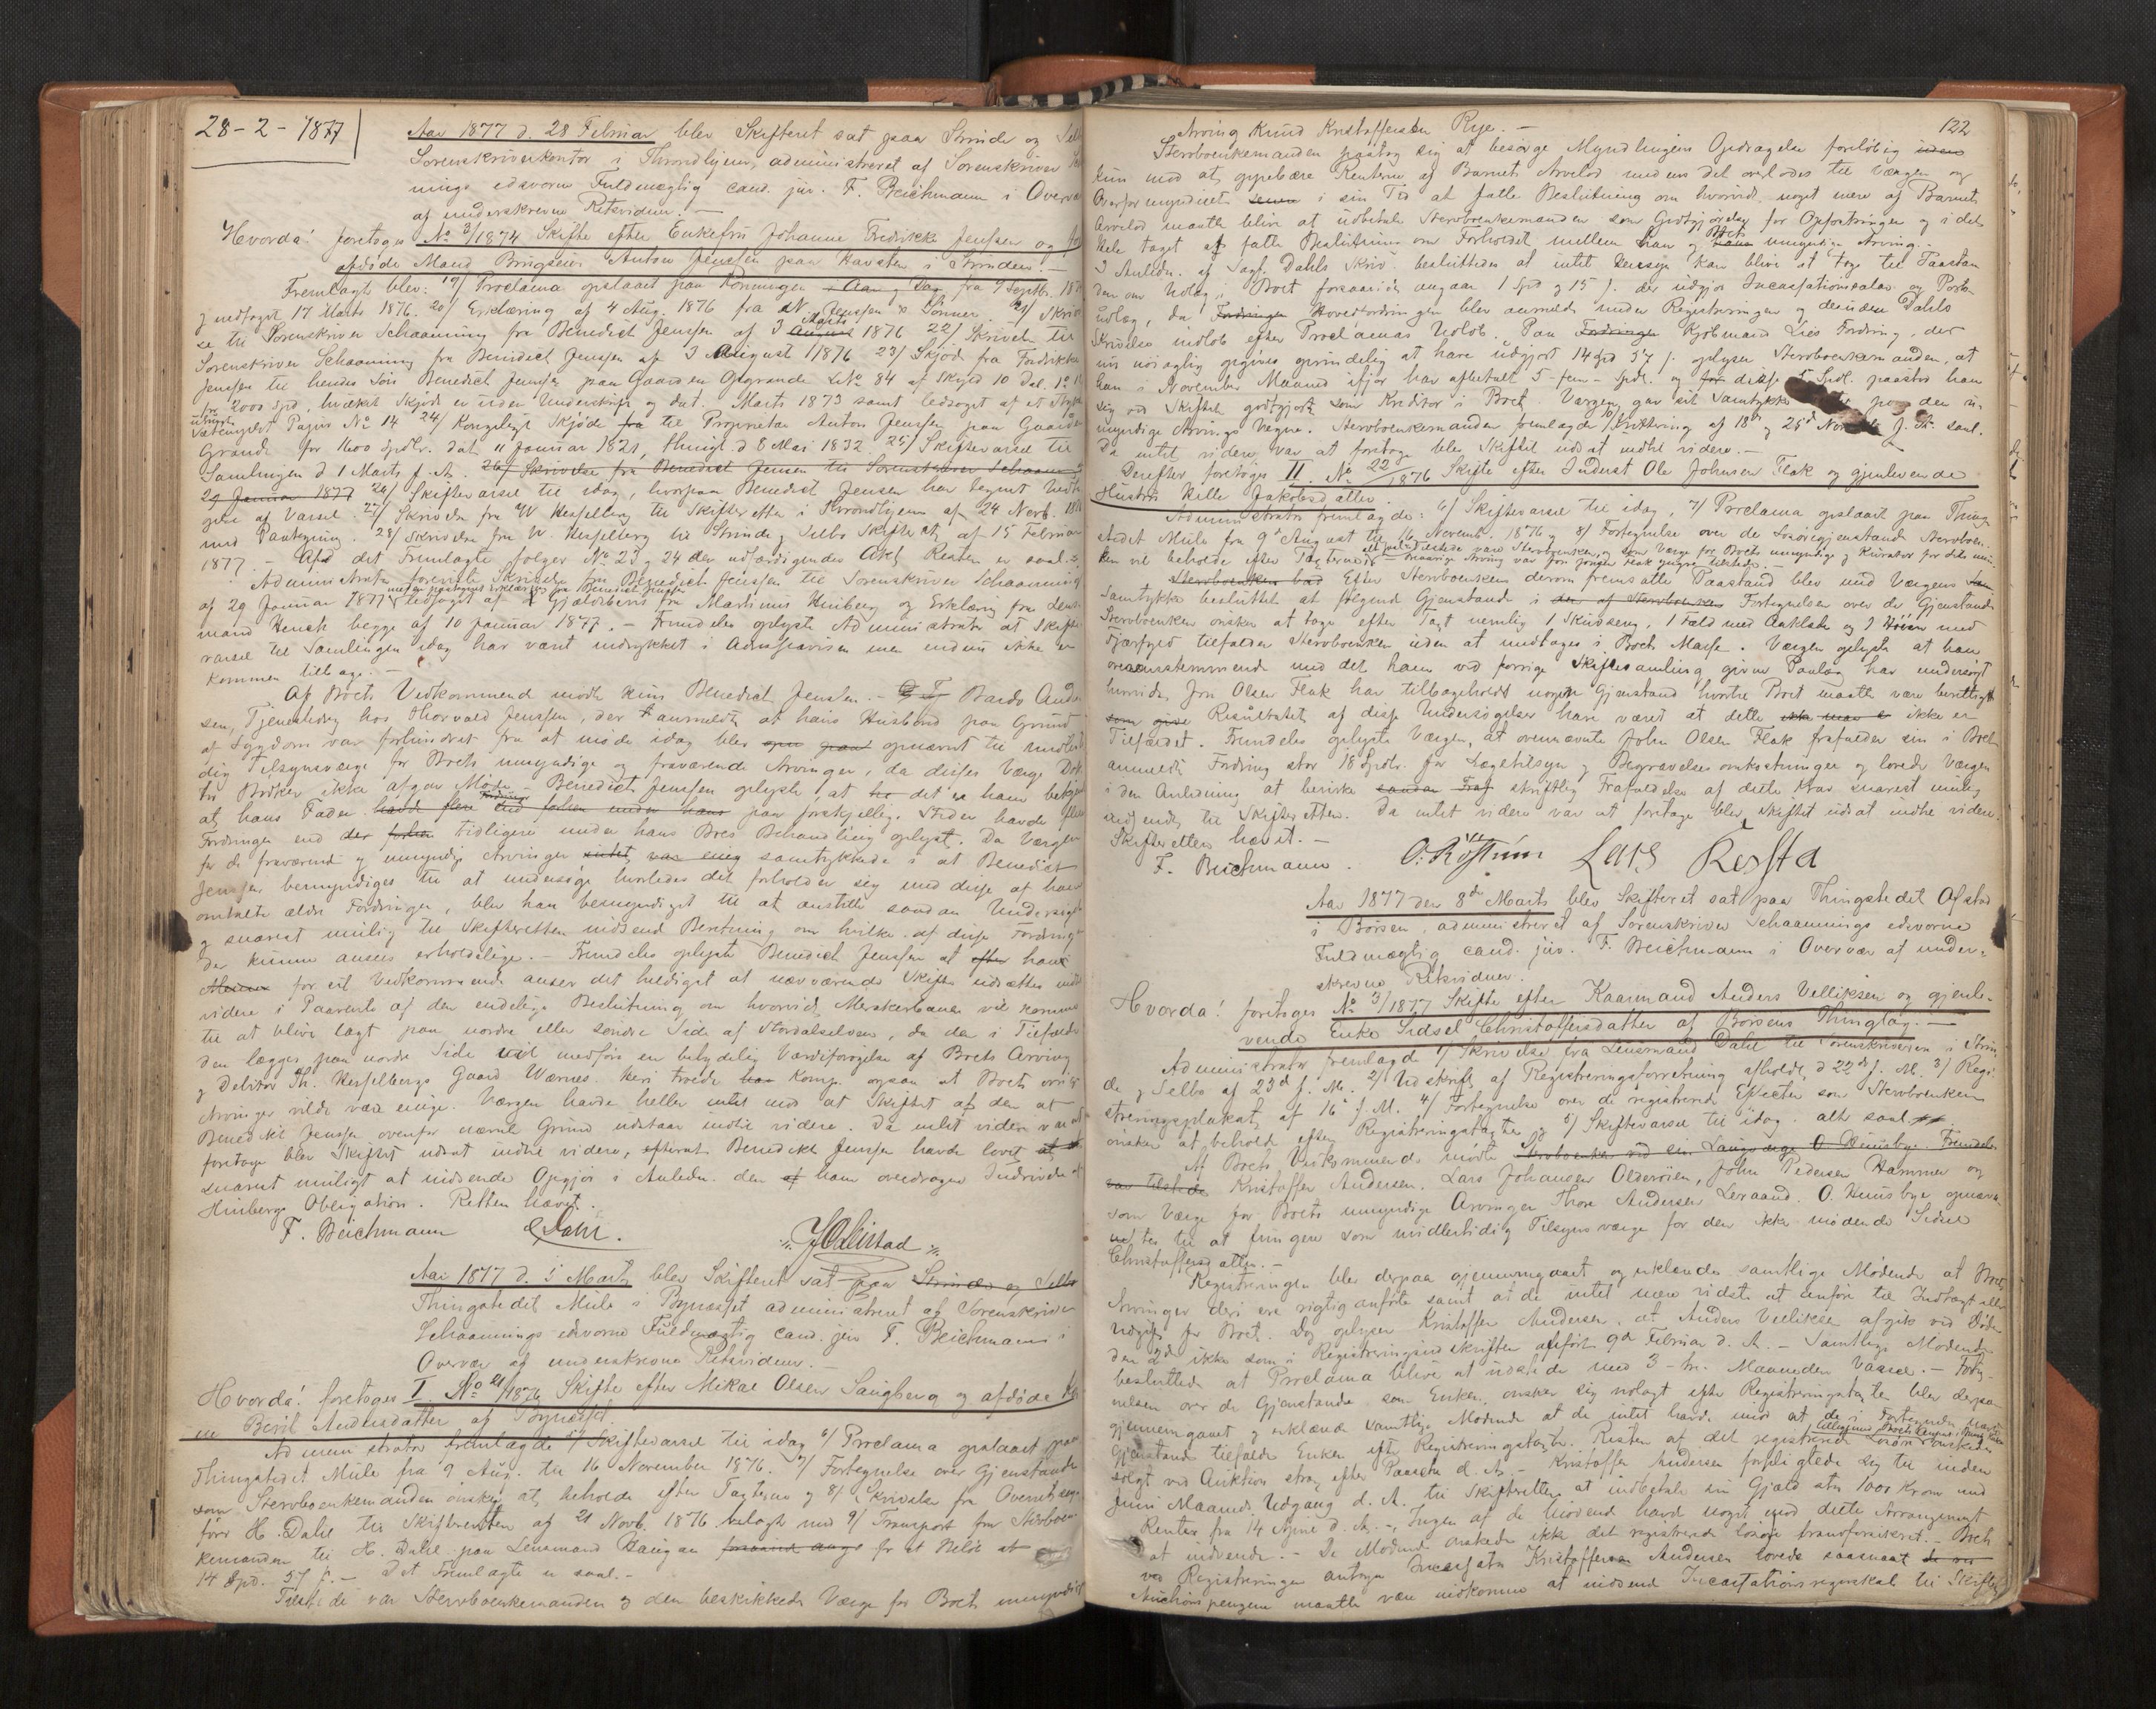 28-2-1877
Aar 1877 d. 28 Februar blev Skifteret sat paa Strinde og Selb
Sorenskriverkontor i Throndhjem, administreret af Sorenskriver
nings edsvorne Fuldmægtig cand. jur. F. Beichmann i Overvær
af underskrevne Retsvidner. —
Hvorda! foretoges No 3/1874 Skifte efter Enkefru Johanne Fredrikke Jenssen og
afdøde Mand Anton Jenssen paa Havsten i Strinden. —
Fremlagt blev: 19/ Proclama opslaaet paa fra 9 Septbr. 18
og nedtaget 17 Marts 1876. 20/ Erklæring af 4 Aug. 1876 fra N. Jenssen & Sønner 21/ Skrivel
se til Sorenskriver Schaanning fra Benedict Jenssen af 3 Marts 1876 22/ Skrivelse til
Sorenskriver Schaanning fra Benedict Jenssen af 3 August 1876 23/ Skjøde fra Fredrikke
Jenssen til hendes Søn Benedict Jenssen paa Gaarden Øgrande LNo 84 af Skyld 10 Dal.
for 2000 Spd, hvilket Skjøde er uden Underskrift og dat. Marts 1873 samt ledsaget af et
Papir No 14 24/ Kongeligt Skjøde fra til Proprietær Anton Jenssen paa Gaarden
Grande for 1600 Spdlr. dat 11 Januar 1821, thingl. d 8 Mai 1832 25/ Skiftevarsel til
Samlingen d 1 Marts f. A. 26/ Skrivelse fra Benedict Jenssen til Sorenskriver Schaanning
29 Januar 1877 26/ Skiftevarsel til idag, hvorpaa Benedict Jenssen har tegnet Vedta
gelse af Varsel. 27/ Skrivelse fra W Hesselberg til Skifteretten i Throndhjem af 24 Novb. 18
med Paategning. 28/ Skrivelse fra W. Hesselberg til Strinde og Selbo Skifteret af 15 Februar
1877. — Af det Fremlagte følger No 23 og 24 den udfærdigende Akt, Resten er saal.
Administrator foreviste Skrivelse fra Benedict Jenssen til Sorenskriver Schaanning
af 29 Januar 1877 ledsaget af Gjældsbevis fra Martinus Huiberg og Erklæring fra Lens
mand Hersch begge af 10 Januar 1877. — Fremdeles oplyste Administrator at Skifte
varsel til Samlingen idag har været indrykket i Adresseavisen men endnu ikke er
kommen tilbage. —
Af Boets Vedkommende mødte kun Benedict Jenssen. — Bardo Ander
sen, Tjenestkarl hos Thorvald Jenssen, der anmeldte at hans Husbond paa Grund
af Sygdom var forhindret fra at møde idag blev opnævnt til midler
dig Tilsynsværge for Boets umyndige og fraværende Arvinger, da disses Værge Dok
tor ikke afgav Møde. Benedict Jenssen oplyste, at det er ham bekjendt
at hans Fader paa forskjellige Steder havde flere
Fordringer end der tidligere under hans Boes Behandling oplyst. Da Værgen
for de fraværende og umyndige Arvinger samtykkede i at Benedict
Jenssen bemyndiges til at undersøge hvorledes det forholder sig med disse af ham
omtalte ældre Fordringer, blev han bemyndiget til at anstille saadan Undersøgelse
og snarest mulig til Skifteretten indsende Beretning om hvilke af disse Fordringer
der kunne ansees erholdelige. — Fremdeles oplyste Benedict Jenssen at han
for sit Vedkommende anser det heldigst at nærværende Skifte udsættes indtil
videre i Paavente af den endelige Beslutning om hvorvidt Meraker­banen vil komme
til at blive lagt paa nordre eller søndre Side af Stjørdalselven, da den i Tilfælde
den lægges paa nordre Side vil medføre en betydelig Værdiforøgelse af Boets Arving
og Debitor Th. Hesselbergs Gaard Wærnes. Heri troede Komp. ogsaa at Boets øvrige
Arvinger vilde være enige. Værgen havde heller intet mod at Skiftet af den af
Benedikt Jenssen ovenfor nævnte Grund udstaar indtil videre. Da intet videre var at
foretage blev Skiftet udsat indtil videre, efterat Benedikt Jenssen havde lovet
snarest muligt at indsende Opgjør i Anledn. den af ham overdragne Inddrivelse af
Huibergs Obligation. Retten hævet.
F. Beichmann
Aar 1877 d. 5 Marts blev Skifteret sat paa Strinde og Selbo
Thingstedet Mule i Bynæsset administreret af Sorenskriver
Schaannings edsvorne Fuldmægtig cand. jur F. Beichmann i
Overvær af underskrevne Retsvidner. —
Hvorda! foretoges I No 21/1876 Skifte efter Mikal Olsen Saugberg og afdøde
ne Berit Andersdatter af Bynæsset.
Administrator fremlagde 5/ Skiftevarsel til idag 6/ Proclama opslaaet paa
Thingstedet Mule fra 9 Aug. til 16 November 1876. 7/ Fortegnelse over Gjenstande
som Stervboenkemanden ønsker at beholde efter Taxterne og 8/ Skrivelse fra Overretssag
fører H. Dahl til Skifteretten af 21 Novb. 1876 belagt med 9/ Transport fra Stervboen
kemanden til H. Dahl paa Lensmand Haugan for et Beløb
14 Spd. 57 s. — Det Fremlagte er saal. —
Tilstede var Stervboenkemanden og den beskikkede Værge for Boets umyndige
122
Arving Knud Kristoffersen Rye. —
Stervboenkemanden paatog sig at besørge Myndlingens Opdragelse foreløbig uden
kun mod at oppebære Renterne af Barnets Arvelod medens det overlodes til Værgen og
Overformynderiet i sin Tid at fatte Beslutning om hvorvidt noget mere af Barnets
Arvelod maatte blive at udbetale Stervboenkemanden som Godtgjørelse for Opfostringen og i det
Hele taget at fatte Beslutning om Forholdet mellem ham og Boets umyndige Arving. —
I Anledn. af Sagf. Dahls Skriv. besluttedes at intet Hensyn kan blive at tage til Paastan
den om Udlæg i Boet forsaavidt angaar 1 Spd og 15 s. der udgjør Incassationssalær og Porto
udlæg, da Hovedfordringen blev anmeldt under Registreringen og desuden Dahls
Skrivelse indløb efter Proclamas Udløb. Paa Kjøbmand Lies Fordring, der
nu nøiagtig opgives oprindelig at have udgjort 14 Spd 57 s. oplyser Stervboenkemanden, at
han i November Maaned ifjor har afbetalt 5 - fem - Spdl. og disse 5 Spdl. paastod han
sig ved Skiftet godtgjort som Kreditor i Boet. Værgen gav sit Samtykke paa den u-
myndige Arvings Vegne. Stervboenkemanden fremlagde 10/ Kvittering af 18de og 25de f. A. saal.
Da intet videre var at foretage blev Skiftet udsat indtil videre. —
Derefter foretoges II. No 22/1876 Skifte efter Inderst Ole Johnsen Flak og gjenlevende
Hustru Kelle Jakobsdatter.
Administrator fremlagde: 6/ Skiftevarsel til idag, 7/ Proclama opslaaet paa Thing
stedet Mule fra 9 August til 16 Novemb. 1876 og 8/ Fortegnelse over de Løsøregjenstande Stervboen-
ken vil beholde efter Taxterne. Tilstede vare Stervboenken, og som Værge for Boets umyndige og Kurator for dets min-
dreaarige Arving var Jon Jonsen Flak yngre tilstede. —
Stervboenken bad Efter Stervboenkens derom fremsatte Paastand blev med Værgens
Samtykke besluttet at følgende Gjenstande i den af Stervboenken Fortegnelsen over de Gjenstande
Stervboenken ønsker at tage efter Taxt nemlig 1 Skindseng, 1 Fæld med Aaklæde og 2 med
Fjærfyld tilfalder Stervboenken uden at medtages i Boets Masse. Værgen oplyste at han
overensstemmende med det ham ved forrige Skiftesamling givne Paalæg har undersøgt
hvorvidt Jon Olsen Flak har tilbageholdt nogen Gjenstand hvortil Boet maatte være berettiget
Resultatet af disse Undersøgelser have været at dette ikke er
Tilfældet. Fremdeles oplyste Værgen, at ovennævnte John Olsen Flak frafalder sin i Boet
anmeldte Fordring stor 18 Spdlr. for Lægetilsyn og Begravelsesomkostninger og lovede Værgen
i den Anledning at bevirke skriftlig Frafaldelse af dette Krav snarest mulig
indsendt til Skifteretten. Da intet videre var at foretage blev Skiftet udsat indtil videre.
Skifteretten hævet. —
F. Beichmann. O. Røstum Lars Rossta
Aar 1877 den 8de Marts blev Skifteret sat paa Thingstedet Ofstad
i Børsen, administreret af Sorenskriver Schaannings edsvorne
Fuldmægtig cand. jur. F. Beichmann i Overvær af under-
skrevne Retsvidner.
Hvorda! foretoges No 3/1877 Skifte efter Kaarmand Anders Velliksen og gjenle-
vende Enke Sidsel Christoffersdatter af Børsens Thinglag. —
Administrator fremlagde 1/ Skrivelse fra Lensmand Dahl til Sorenskriveren i Strin
de og Selbo af 23d f. M. 2/ Udskrift af Registreringsforretning afholdt d 22de f. M. 3/ Regi-
streringsplakat af 16de f. M. 4/ Fortegnelse over de registrerede Effecter som Stervboenken
ønsker at beholde efter Registreringstaxten og 5/ Skiftevarsel til idag. alt saal.
Af Boets Vedkommende mødte Stervboenken ved sin Laugværge O Huusbye. Fremdeles
var tilstede Kristoffer Andersen. Lars Johansen Olderøien, John Pedersen Hammer og
som Værge for Boets umyndige Arvinger Thore Andersen Leraand. O. Huusbye opnævn
tes til at fungere som midlertidig Tilsynsværge for den ikke mødende Sidsel
Christoffersdatter. —
Registreringen blev derpaa gjennemgaaet og erklærede samtlige Mødende at Boets
Arvinger deri ere rigtig anførte samt at de intet mere vidste at anføre til Indtægt eller
Udgift for Boet. Dog oplyser Kristoffer Andersen, at Anders Velliksen afgik ved Døden
den 2de ikke som i Registreringsudskriften anført 9de Februar d. A. — Samtlige Mødende
besluttede at Proclama bliver at udstede med 3 - tre - Maaneders Varsel. — Forteg-
nelsen over de Gjenstande som Enken ønsker sig udlagt efter Registreringstaxten blev derpaa
gjennemgaaet og erklærede samtlige Mødende at de intet havde mod at de i Fortegnelsen nævnte
Gjenstande tilfaldt Enken efter Registreringstaxten. Resten af det registrerede Løsøre ønskedes
solgt ved Auktion strax efter Paaske d. A. — Kristoffer Andersen forpligtede sig til inden
Juni Maaneds Udgang d. A. til Skifteretten at indbetale sin Gjæld stor 1000 Kroner med
Renter fra 14 April d. A. — Ingen af de Mødende havde noget mod dette Arrangement
at indvende. — De Mødende ønskede ikke det registrerede Løsøre brandforsikret. — Den
ved Registreringen antagne Incassator Kristoffer Andersen lovede saasnart
Auctionspengene maatte være indkomne at indsende Incassationsregnskab til Skifte